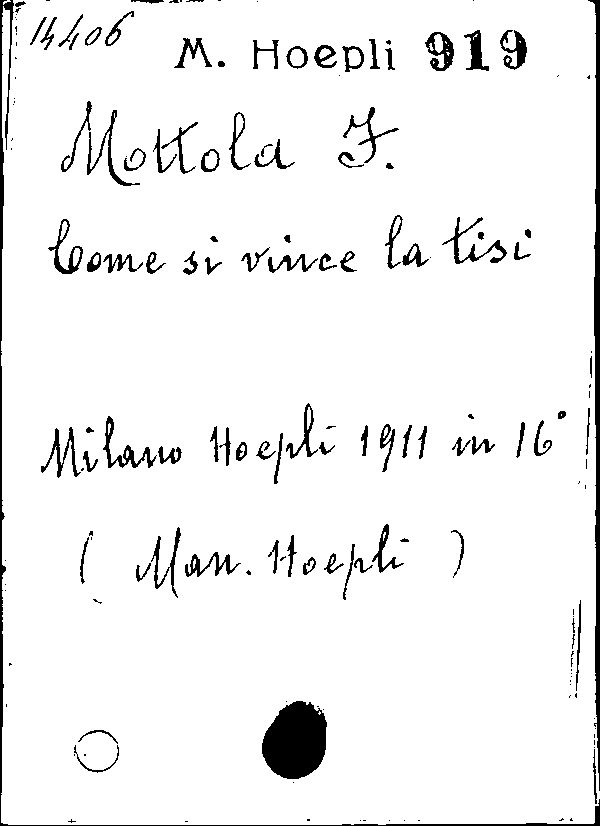 14406
M. Hoepli 919
Mottola F.
Come si vince la tisi
Milano Hoepli 1911 in 16°
( Man. Hoepli )